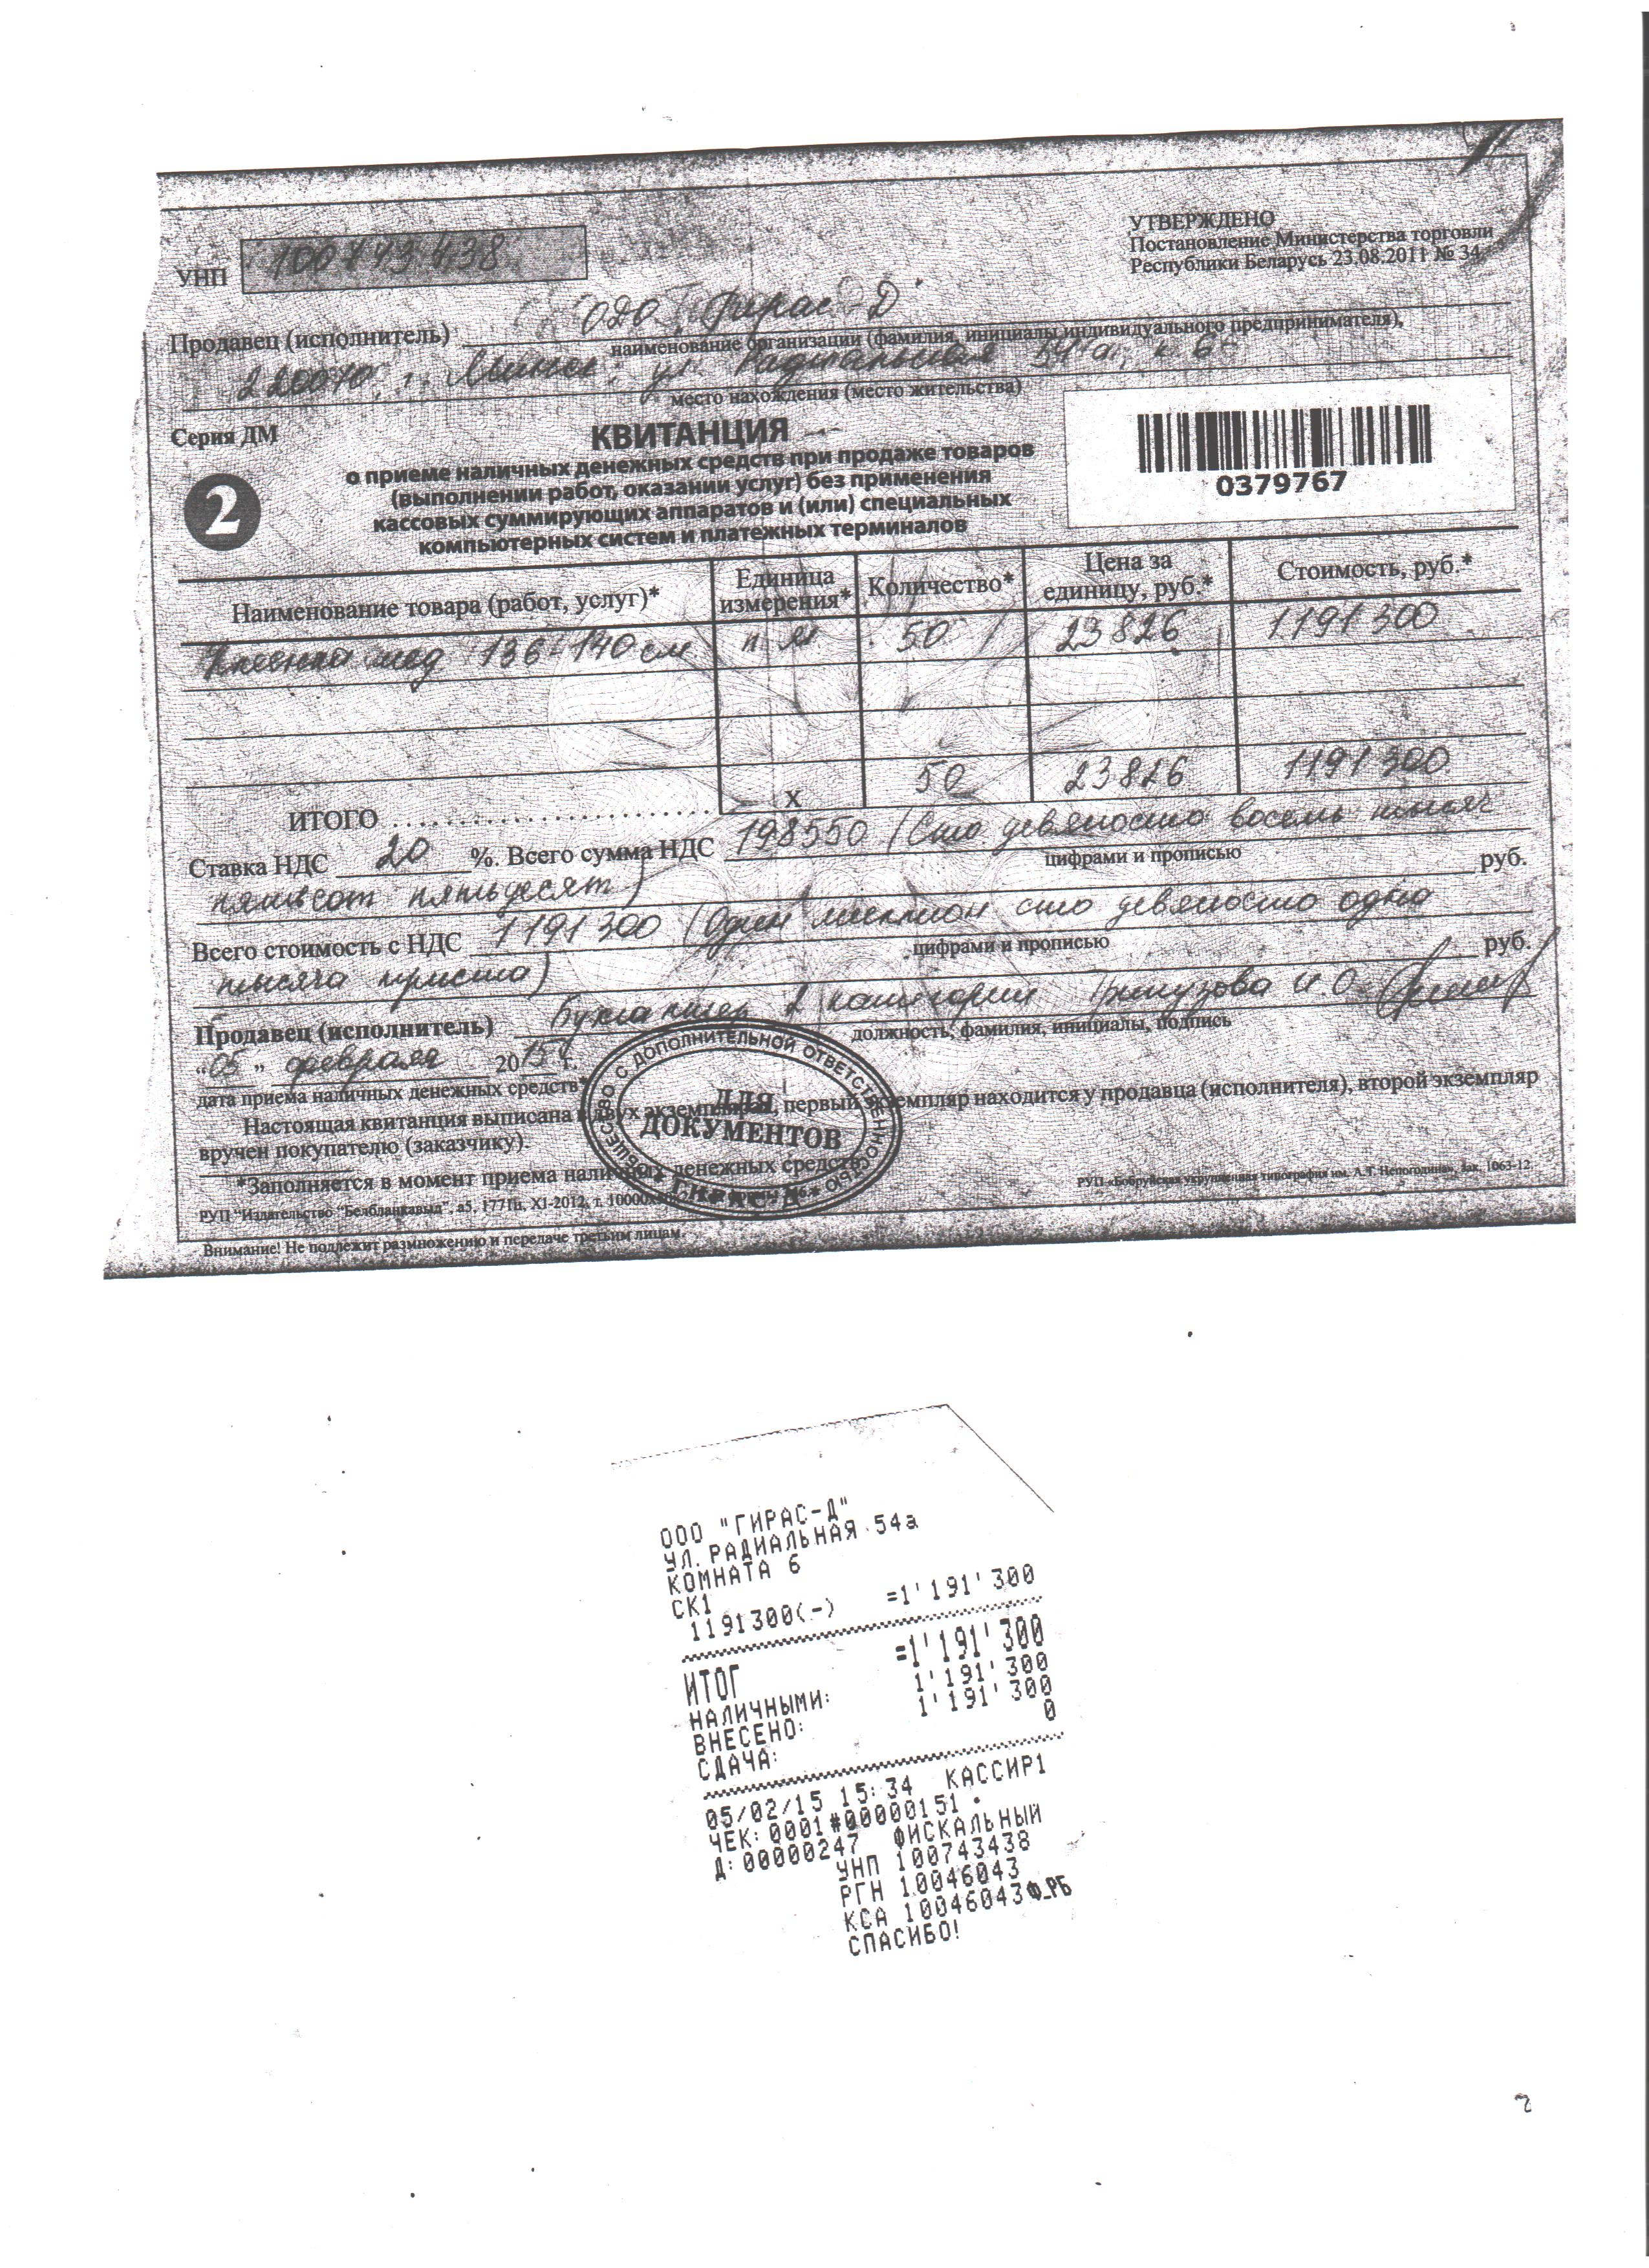 УТВЕРЖДЕНО
Постановление Министерства торговли
Республики Беларусь 23.08.2011 № 34
УНП 100743438
Продавец (исполнитель) ОДО "Гирас-Д"
наименование организации (фамилия, инициалы индивидуального предпринимателя),
220070, г. Минск, ул. Радиальная 54а, к. 6
место нахождения (место жительства)
Серия ДМ
КВИТАНЦИЯ
2
о приеме наличных денежных средств при продаже товаров
(выполнении работ, оказании услуг) без применения
кассовых суммирующих аппаратов и (или) специальных
компьютерных систем и платежных терминалов
0379767
Наименование товара (работ, услуг)* Единица измерения* Количество* Цена за единицу, руб.* Стоимость, руб.*
136-140 см п.м. 50 23826 1191300
50 23826 1191300
ИТОГО ........................ х
Ставка НДС 20 %. Всего сумма НДС 198550 (Сто девяносто восемь тысяч
цифрами и прописью
пятьсот пятьдесят) руб.
Всего стоимость с НДС 1191300 (Один миллион сто девяносто одна
цифрами и прописью
тысяча триста) руб.
Продавец (исполнитель) Бухгалтер 2 категории И.О.
должность, фамилия, инициалы, подпись
"05" февраля 2015 г.
дата приема наличных денежных средств*
Настоящая квитанция выписана в двух экземплярах, первый экземпляр находится у продавца (исполнителя), второй экземпляр
вручен покупателю (заказчику).
*Заполняется в момент приема наличных денежных средств.
РУП "Издательство "Белбланкавыд", а5, 1771ц, XI-2012, т. 10000х50
РУП «Бобруйская укрупненная типография им. А.Т. Непогодина», зак. 1063-12
Внимание! Не подлежит размножению и передаче третьим лицам.
ОБЩЕСТВО С ДОПОЛНИТЕЛЬНОЙ ОТВЕТСТВЕННОСТЬЮ
ДЛЯ
ДОКУМЕНТОВ
ГИРАС-Д
ООО "ГИРАС-Д"
УЛ. РАДИАЛЬНАЯ 54а
КОМНАТА 6
СК1
1191300(-) =1'191'300
ИТОГ =1'191'300
НАЛИЧНЫМИ: 1'191'300
ВНЕСЕНО: 1'191'300
СДАЧА: 0
05/02/15 15:34 КАССИР1
ЧЕК: 0001#00000151
Д: 00000247 ФИСКАЛЬНЫЙ
УНП 100743438
РГН 10046043
КСА 10046043 Ф_РБ
СПАСИБО!